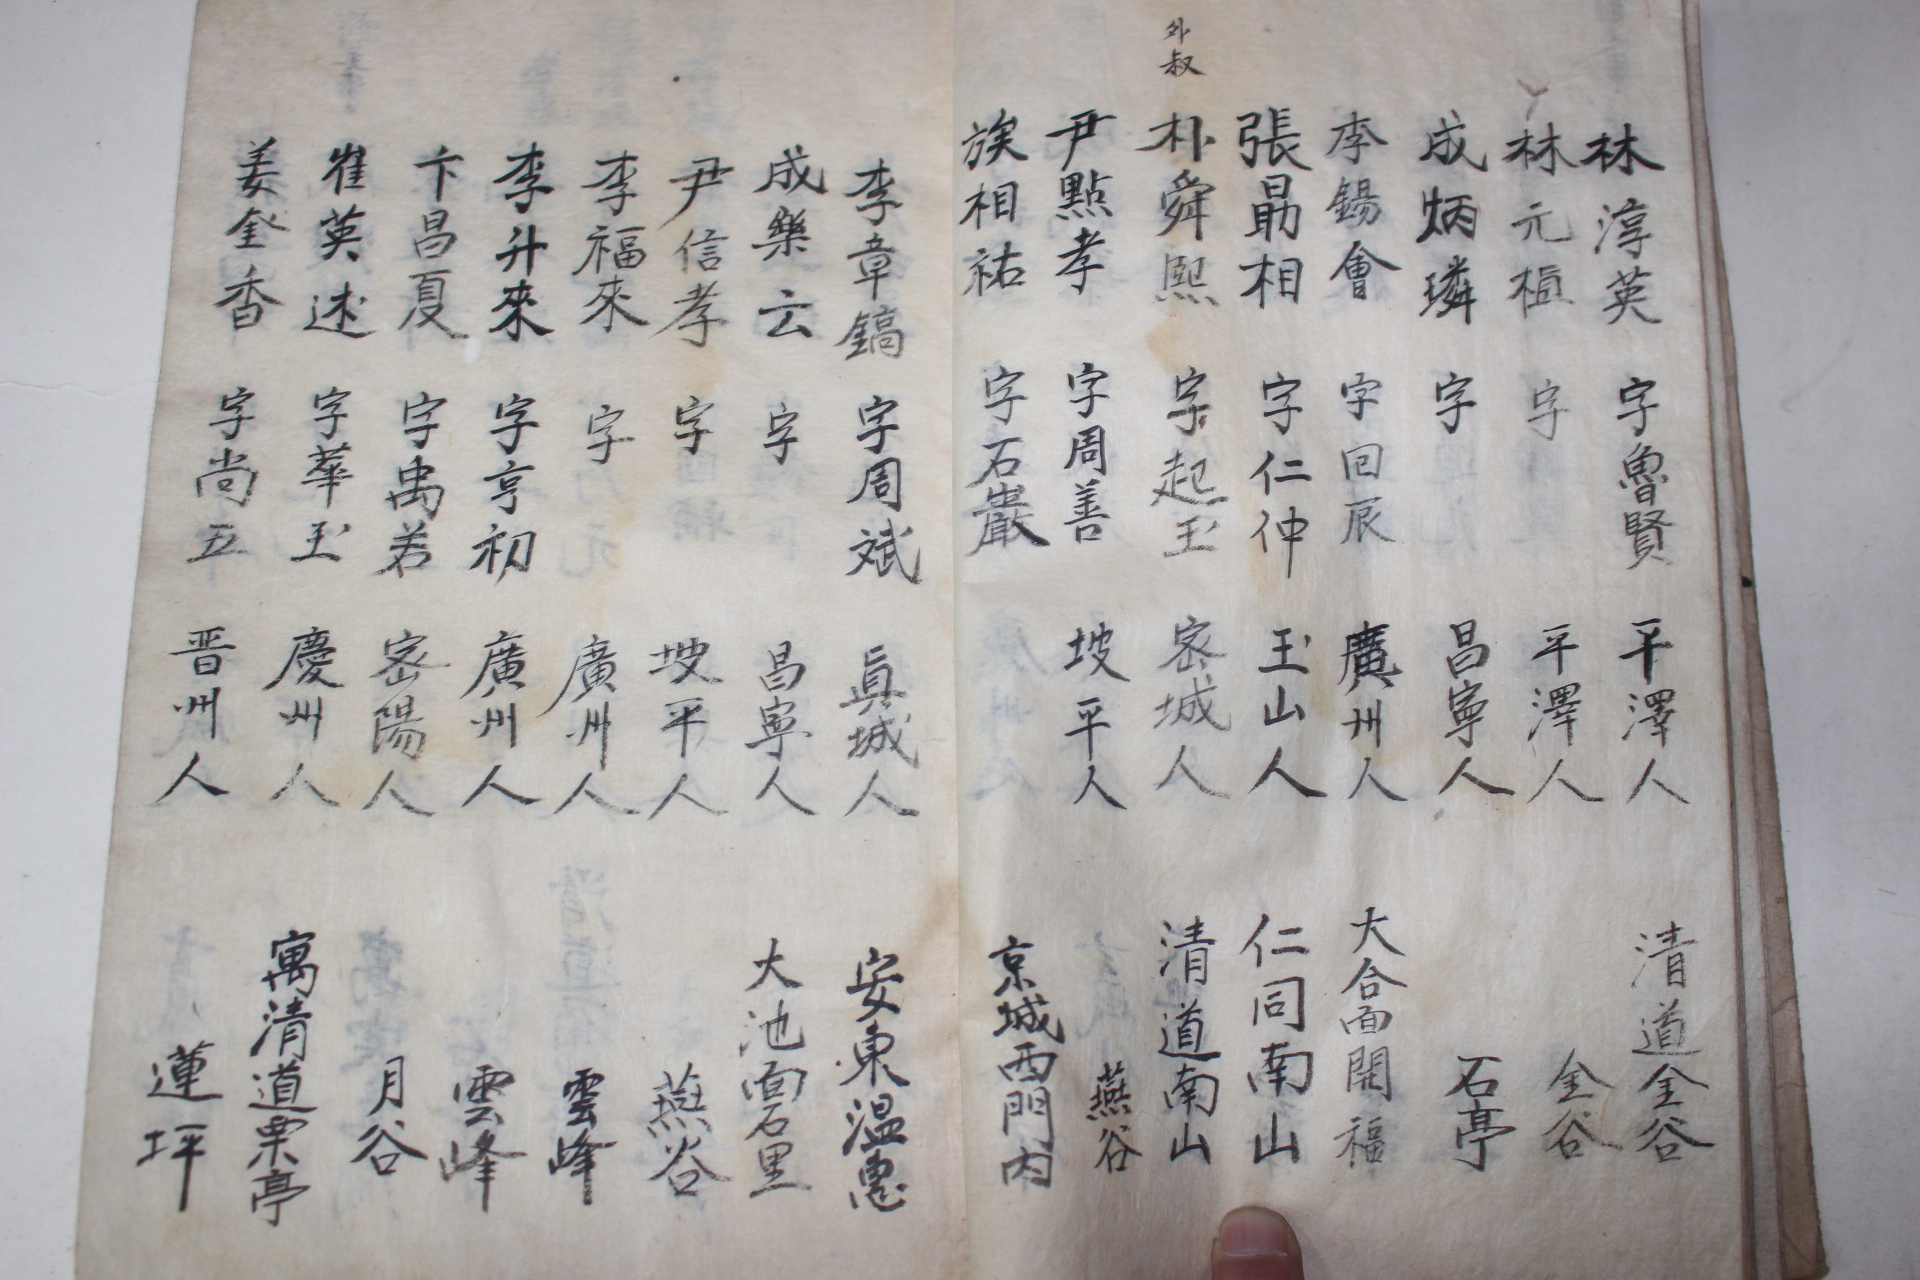 林淳英 字魯賢 平澤人 清道金谷
林元楨 字 平澤人 金谷
成炳璘 字 昌寧人 石亭
李錫會 字回辰 廣州人 大合面開福
張勗相 字仁仲 玉山人 仁同南山
外叔
朴舜熙 字起玉 密城人 清道南山
尹點孝 字周善 坡平人 燕谷
族相祐 字石巖 京城西門內
李章鎬 字周斌 眞城人 安東溫惠
成樂云 字 昌寧人 大池面石里
尹信孝 字 坡平人 燕谷
李福來 字 廣州人 雲峰
李升來 字亨初 廣州人 雲峰
卞昌夏 字禹若 密陽人 月谷
崔英述 字華玉 慶州人 寓清道栗亭
姜奎香 字尚五 晋州人 蓮坪